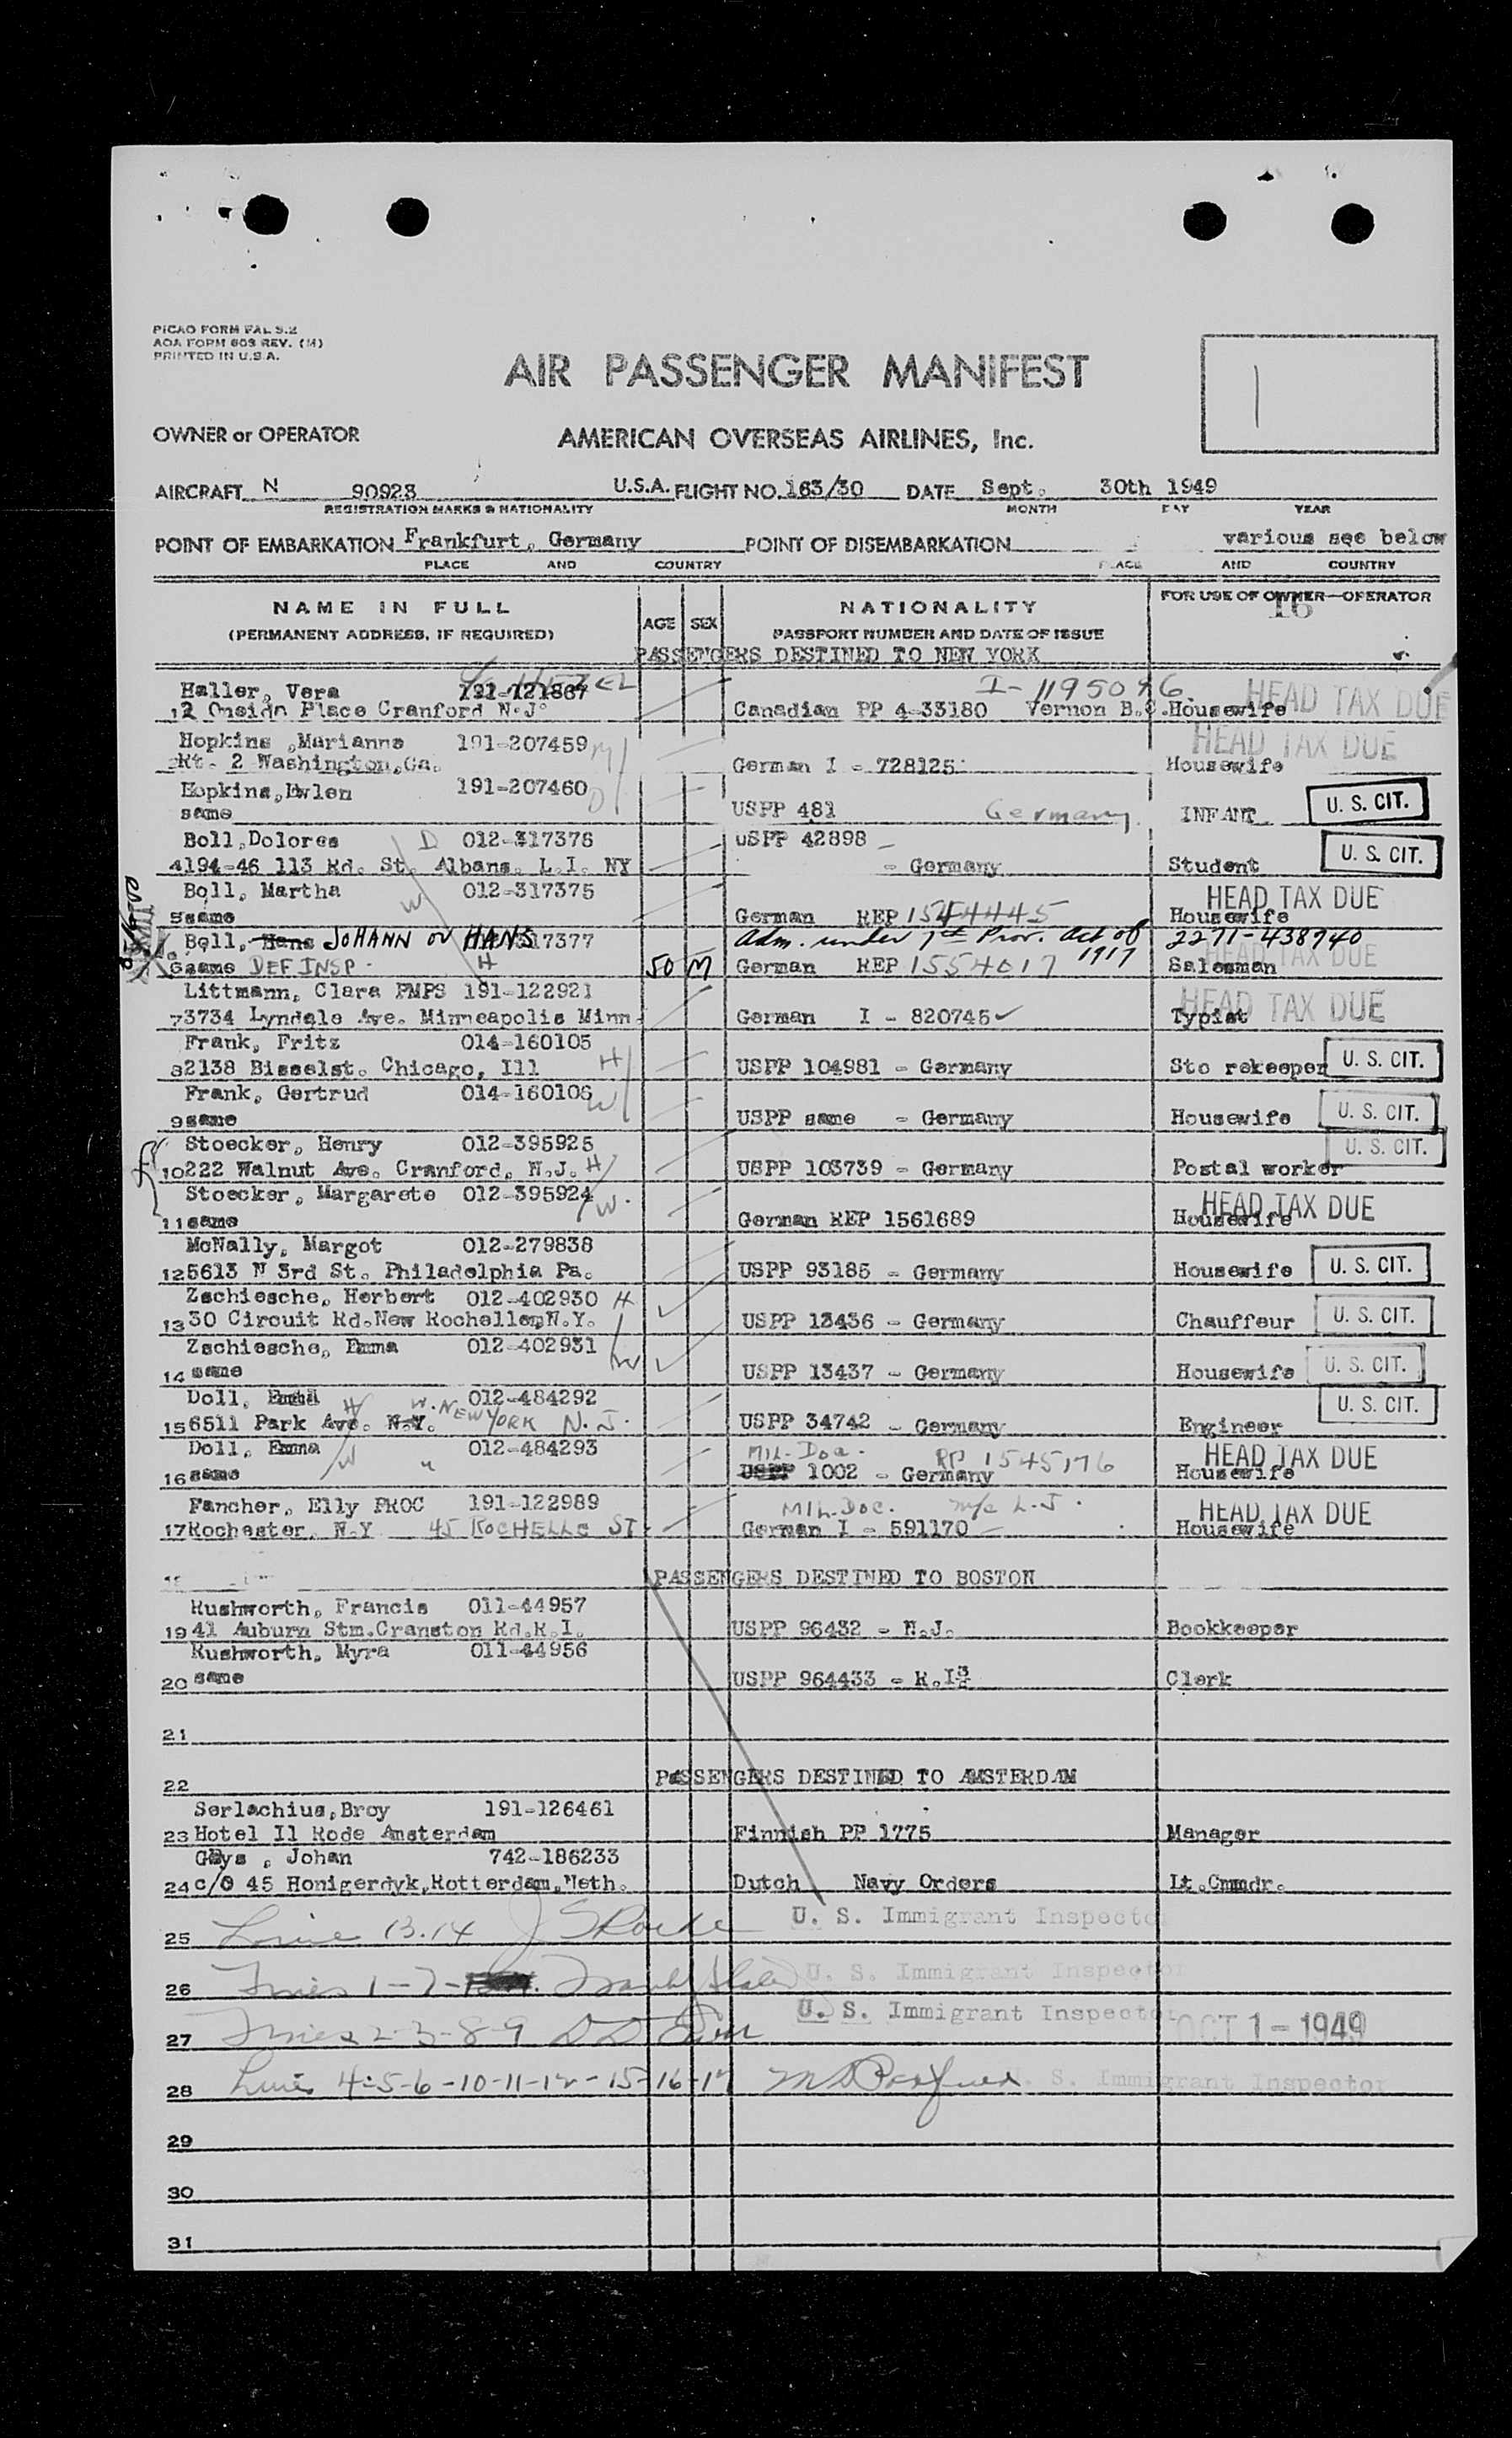 PICAO FORM FAL 5.2
AOA FORM 603 REV. (M)
PRINTED IN U.S.A.
AIR PASSENGER MANIFEST
OWNER or OPERATOR AMERICAN OVERSEAS AIRLINES, Inc.
AIRCRAFT N 90923 U.S.A. FLIGHT NO. 163/30 DATE Sept. 30th 1949
REGISTRATION MARKS & NATIONALITY MONTH DAY YEAR
POINT OF EMBARKATION Frankfurt, Germany POINT OF DISEMBARKATION various see below
PLACE AND COUNTRY PLACE AND COUNTRY
NAME IN FULL AGE SEX NATIONALITY FOR USE OF OWNER—OPERATOR
(PERMANENT ADDRESS, IF REQUIRED) PASSPORT NUMBER AND DATE OF ISSUE 16
PASSENGERS DESTINED TO NEW YORK
Haller, Vera 191-121867 I-1195096 HEAD TAX DUE
1 2 Place Cranford N.J. Canadian PP 4-33180 Vernon B.C. Housewife
Hopkins, Marianne 191-207459 M HEAD TAX DUE
Rt. 2 Washington, Ga. German I - 728125 Housewife
Hopkins, 191-207460 D U. S. CIT.
same USPP 481 Germany INFANT
Boll, Dolores D 012-317376 USPP 42898 U. S. CIT.
4 194-46 113 Rd. St. Albans, L.I. NY - Germany Student
Boll, Martha 012-317375 HEAD TAX DUE
5 same W German REP 1544445 Housewife
Boll, Hans JOHANN or HANS 317377 Adm. under 1st Prov. Act of 1917 2271-438940
6 same DEF INSP. H 50 M German REP 1554017 Salesman HEAD TAX DUE
Littmann, Clara PMPS 191-122921 HEAD TAX DUE
7 3734 Lyndale Ave. Minneapolis Minn. German I - 820745 Typist
Frank, Fritz 014-160105 U. S. CIT.
8 2138 Bisselst. Chicago, Ill H USPP 104981 - Germany Sto rekeeper
Frank, Gertrud 014-160106 W U. S. CIT.
9 same USPP same - Germany Housewife
Stoecker, Henry 012-395925 U. S. CIT.
10 222 Walnut Ave. Cranford, N.J. H USPP 103739 - Germany Postal worker
Stoecker, Margarete 012-395924 W. HEAD TAX DUE
11 same German REP 1561689 Housewife
McNally, Margot 012-279838 U. S. CIT.
12 5613 N 3rd St. Philadelphia Pa. USPP 93185 - Germany Housewife
Zschiesche, Herbert 012-402930 H U. S. CIT.
13 30 Circuit Rd. New Rochelle, N.Y. USPP 13436 - Germany Chauffeur
Zschiesche, Emma 012-402931 W U. S. CIT.
14 same USPP 13437 - Germany Housewife
Doll, 012-484292 U. S. CIT.
15 6511 Park Ave. N.Y. H W. NEW YORK N. J. USPP 34742 - Germany Engineer
Doll, Emma 012-484293 MIL. Doc. RP 1545176 HEAD TAX DUE
16 same W " USPP 1002 - Germany Housewife
Fancher, Elly PROC 191-122989 MIL. Doc. HEAD TAX DUE
17 Rochester, N.Y 45 ROCHELLE ST. German I - 591170 Housewife
PASSENGERS DESTINED TO BOSTON
Rushworth, Francis 011-44957
19 41 Auburn Stm. Cranston Rd.R.I. USPP 96432 - N.J. Bookkeeper
Rushworth, Myra 011-44956
20 same USPP 964433 - R.I. Clerk
21
22 PASSENGERS DESTINED TO AMSTERDAM
Serlachius, Broy 191-126461
23 Hotel Il Rode Amsterdam Finnish PP 1775 Manager
Johan 742-186233
24 c/o 45 Honigerdyk, Rotterdam, Neth. Dutch Navy Orders Lt.Cmmdr.
25 Line 13.14 U. S. Immigrant Inspector
26 Lines 1-7 U. S. Immigrant Inspector
27 Lines 2-3-8-9 U. S. Immigrant Inspector OCT 1 - 1949
28 Lines 4-5-6-10-11-12-15-16-17 U. S. Immigrant Inspector
29
30
31